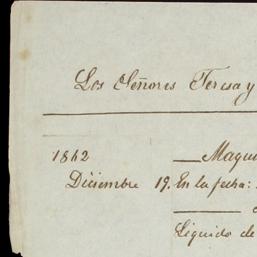 Los Señores Teresa y
1862 Maqui
Diciembre 19. En la fecha:
Líquido de